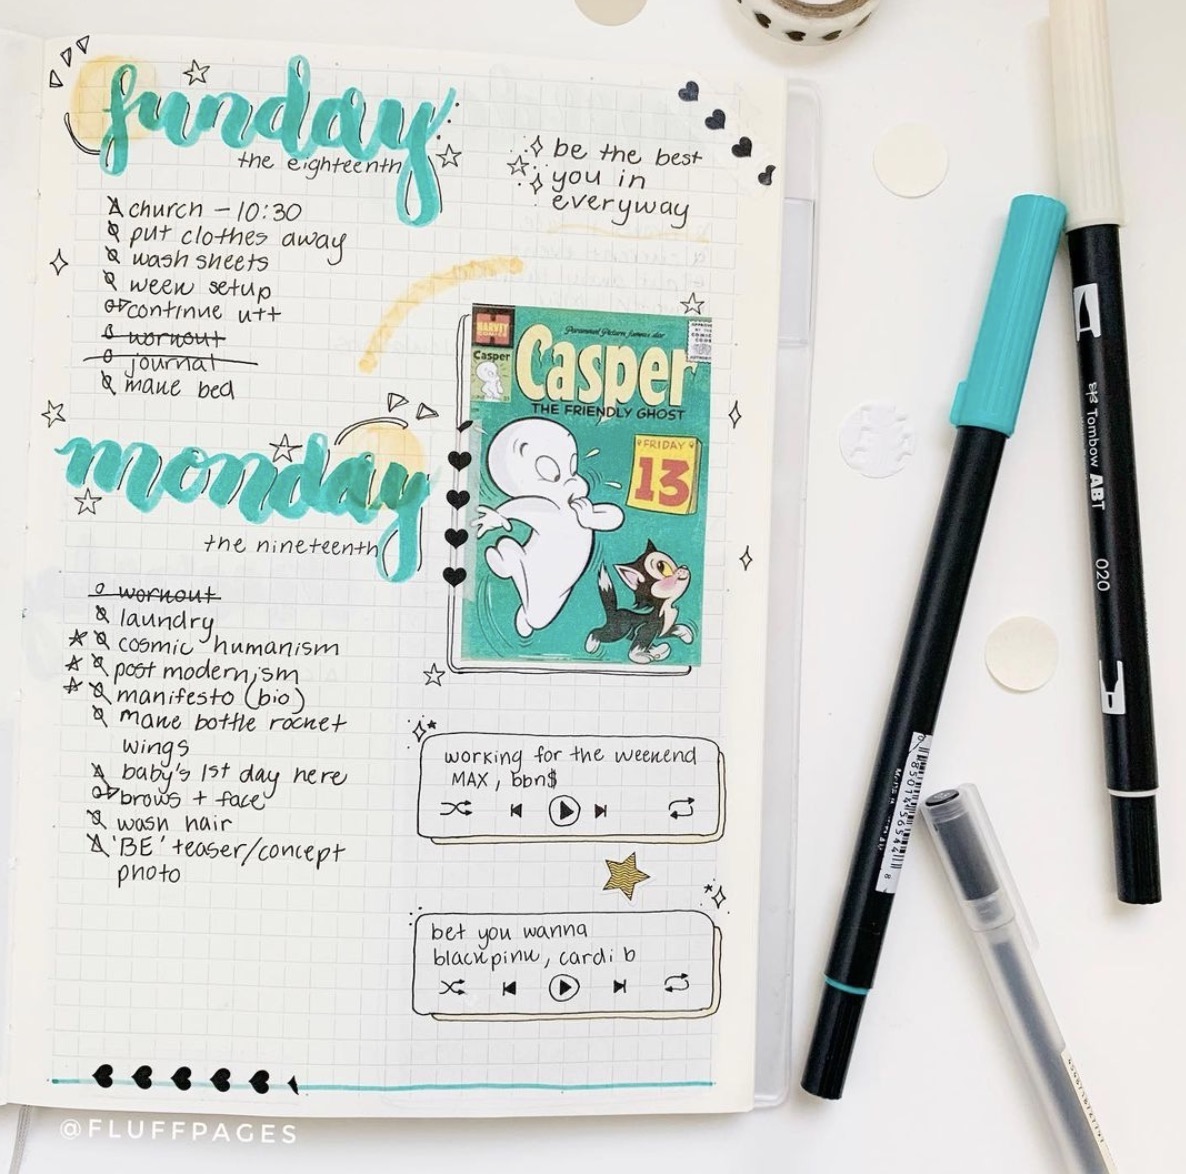 sunday
the eighteenth
church - 10:30
put clothes away
wash sheets
week setup
continue utt
workout
journal
make bed
be the best
you in
everyway
HARVEY
COMICS
Casper
Paramount Pictures famous star
Casper
THE FRIENDLY GHOST
FRIDAY
13
monday
the nineteenth
workout
laundry
cosmic humanism
post modernism
manifesto (bio)
make bottle rocket
wings
baby's 1st day here
brows + face
wash hair
'BE' teaser/concept
photo
working for the weekend
MAX, bbn$
bet you wanna
blackpink, cardi b
@FLUFFPAGES
Tombow ABT
020